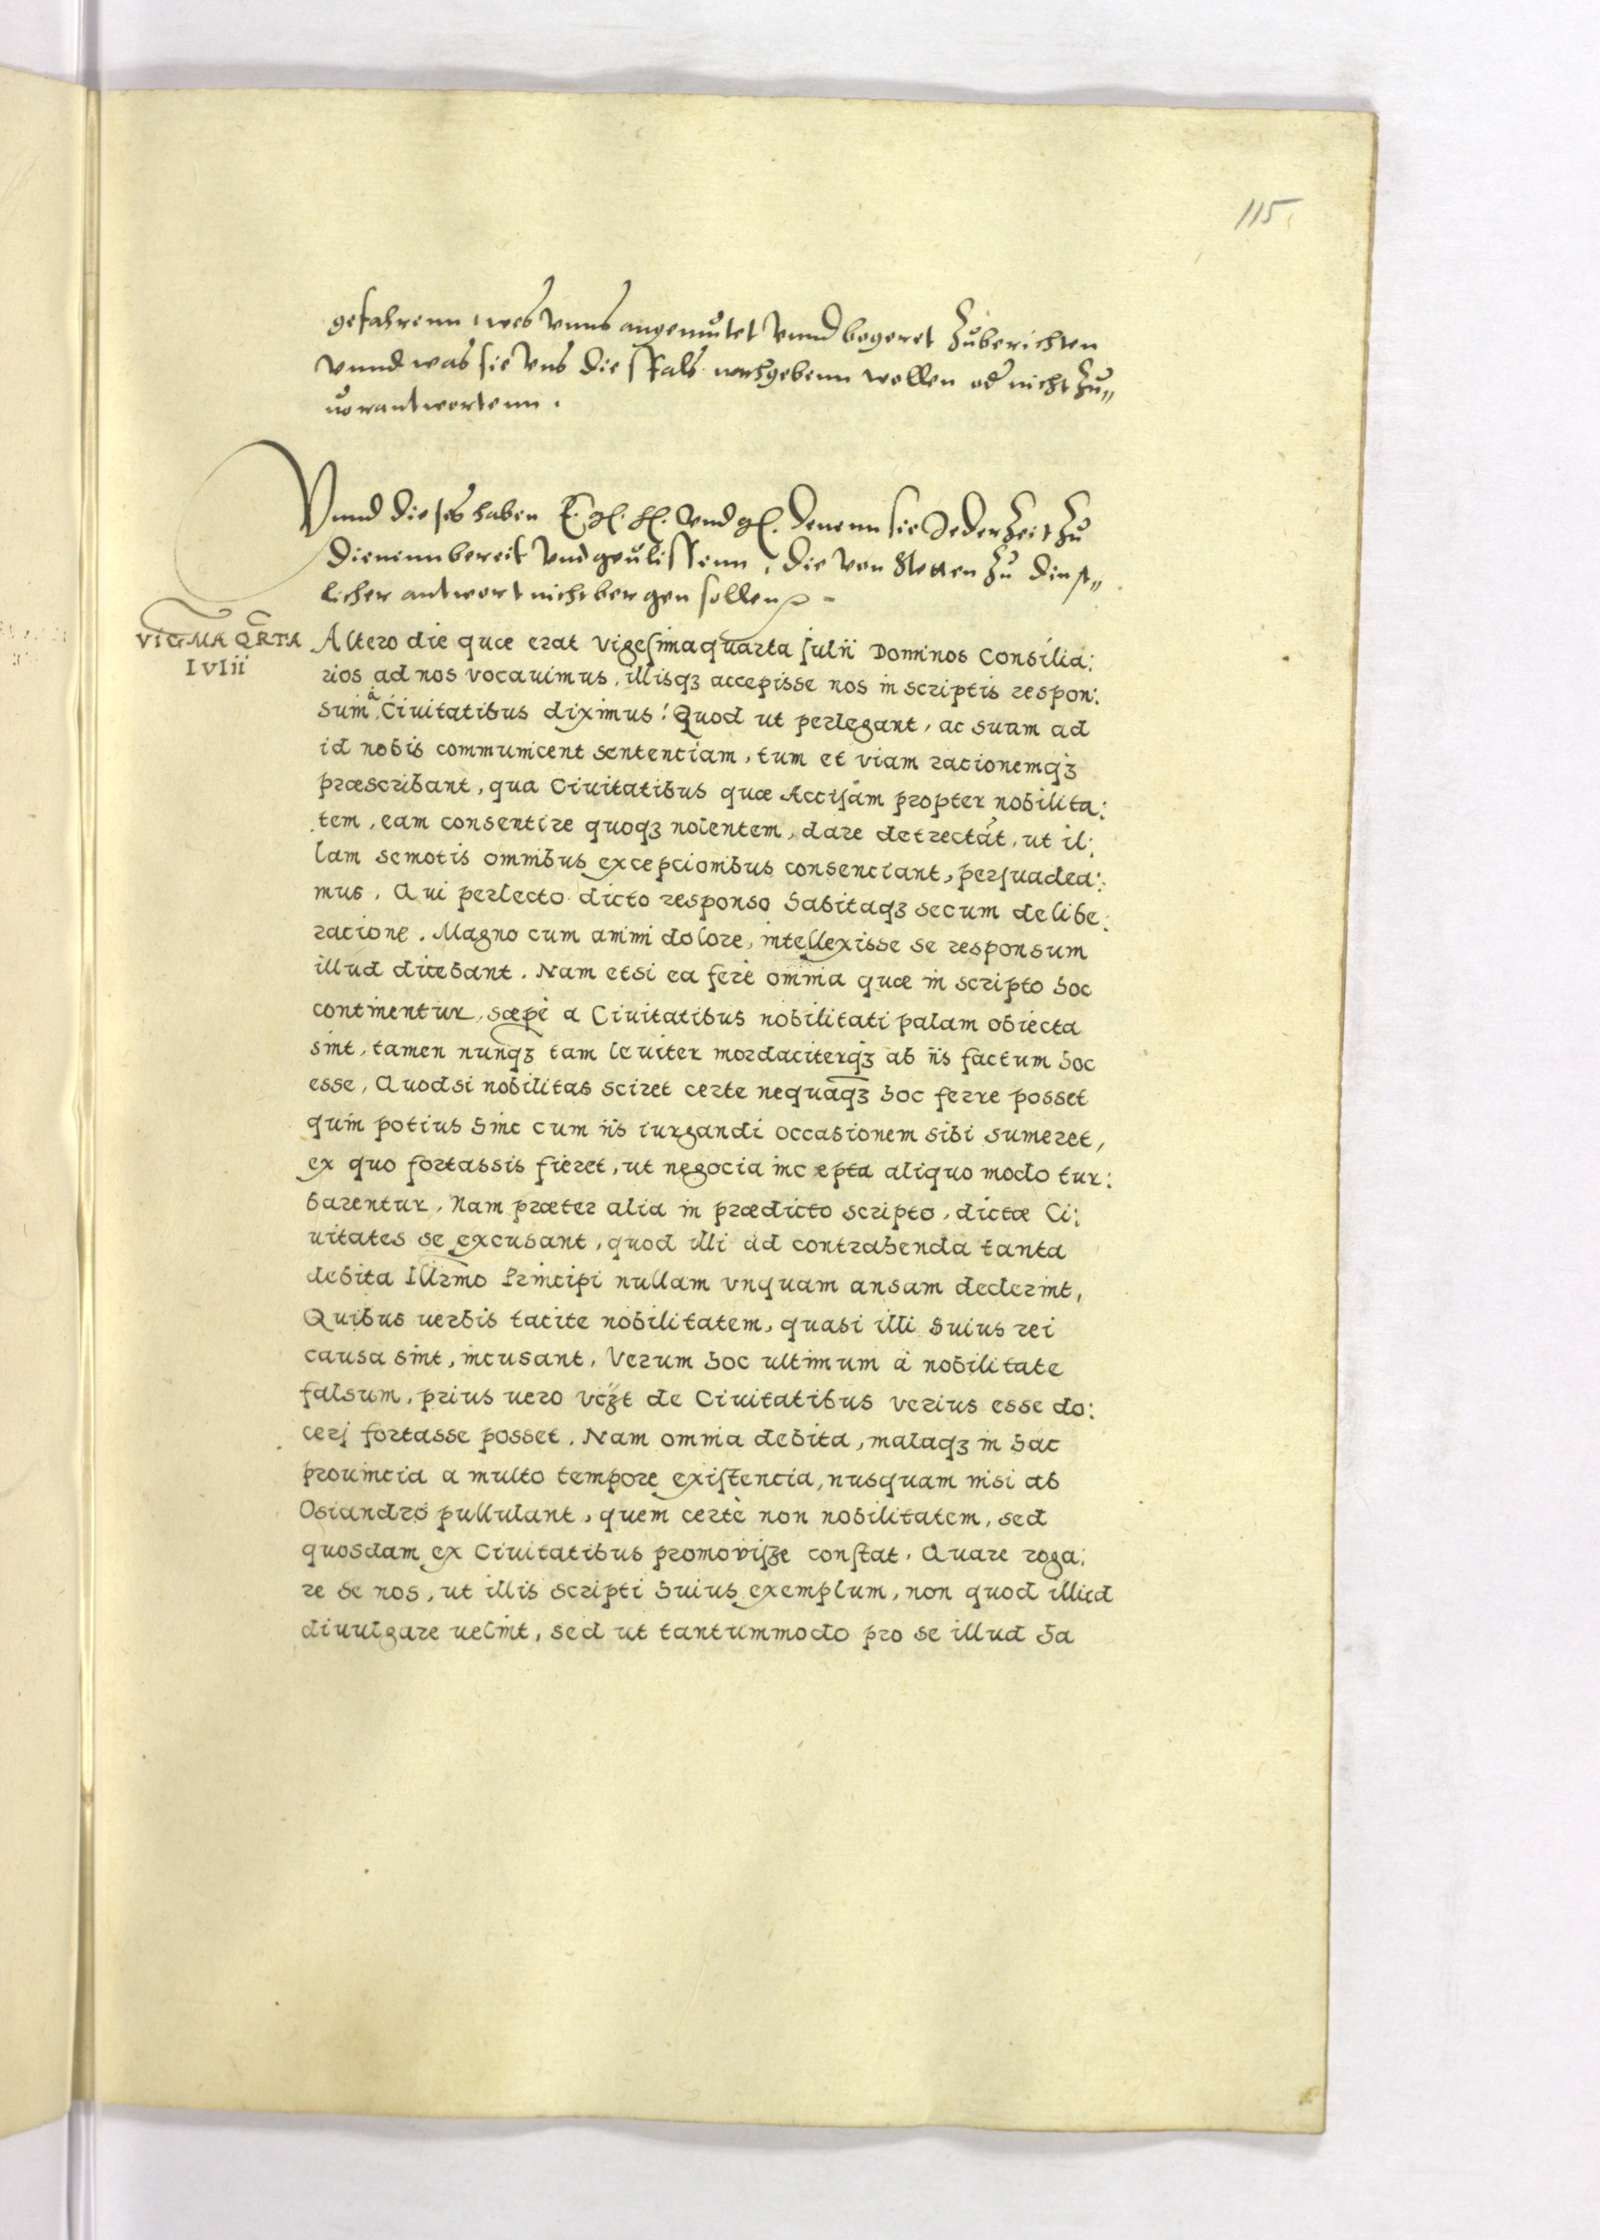 115
gefahrenn, wes vnns angemutet vnnd begeret zuberichten
vnnd was sie vns diesfals nachgebenn wollen od nicht zu„
uorantwortenn.
Vnnd dieses haben E. g. h. vnd g. denenn sie Jederzeit zu
dienenn bereit vnd geulissenn, die von Stetten zu dinst„
licher antwort nicht bergen sollen
VIGMA QRTA
IVlii
Altero die quæ erat vigesima quarta Julii Dominos Consilia:
rios ad nos vocauimus, illisqꝫ accepisse nos in scriptis respon:
sum à Ciuitatibus diximus! Quod ut perlegant, ac suam ad
id nobis communicent sententiam, tum et viam racionemqꝫ
præscribant, qua Ciuitatibus quæ Accisam propter nobilita:
tem, eam consentire quoqꝫ nolentem, dare detrectāt, ut il:
lam semotis omnibus excepcionibus consenciant, persuadea:
mus. Qui perlecto dicto responso habitaqꝫ secum delibe:
racione. Magno cum animi dolore, intellexisse se responsum
illud dicebant. Nam etsi ea ferè omnia quæ in scripto hoc
continentur, sæpè a Ciuitatibus nobilitati palam obiecta
sint, tamen nunqꝫ tam leuiter mordaciterqꝫ ab iis factum hoc
esse, Quodsi nobilitas sciret certe nequaqꝫ hoc ferre posset
quin potius hinc cum iis iurgandi occasionem sibi sumeret,
ex quo fortassis fieret, ut negocia incepta aliquo modo tur:
barentur, Nam præter alia in prædicto scripto, dictæ Ci:
uitates se excusant, quod illi ad contrahenda tanta
debita Illrmo Principi nullam vnquam ansam dederint,
Quibus uerbis tacite nobilitatem, quasi illi huius rei
causa sint, incusant, Verum hoc ultimum à nobilitate
falsum, prius uero de Ciuitatibus verius esse do:
cerj fortasse posset. Nam omnia debita, malaqꝫ in hac
prouincia a multo tempore existencia, nusquam nisi ab
Osiandro pullulant, quem certè non nobilitatem, sed
quosdam ex Ciuitatibus promovisse constat. Quare roga:
re se nos, ut illis scripti huius exemplum, non quod illud
diuulgare uelint, sed ut tantummodo pro se illud ha